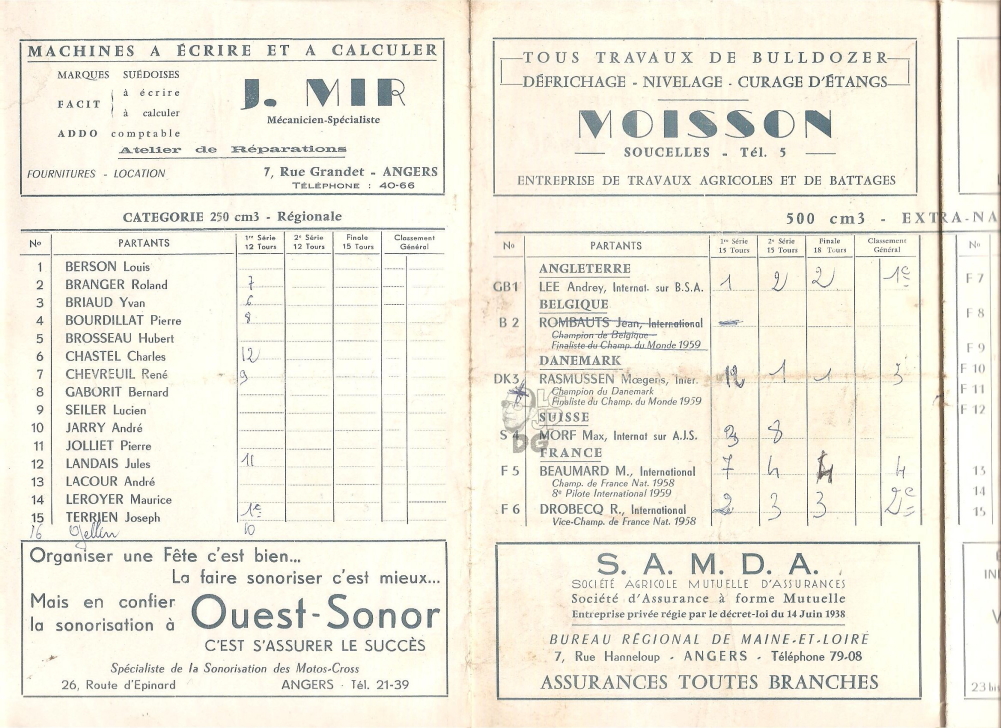 MACHINES A ÉCRIRE ET A CALCULER
MARQUES SUÉDOISES
FACIT
à écrire
à calculer
ADDO comptable
J. MIR
Mécanicien-Spécialiste
Atelier de Réparations
FOURNITURES - LOCATION
7, Rue Grandet - ANGERS
TÉLÉPHONE : 40-66
CATEGORIE 250 cm3 - Régionale
No PARTANTS 1re Série 12 Tours 2e Série 12 Tours Finale 15 Tours Classement Général
1 BERSON Louis
2 BRANGER Roland 7
3 BRIAUD Yvan 6
4 BOURDILLAT Pierre 8
5 BROSSEAU Hubert
6 CHASTEL Charles 12
7 CHEVREUIL René 9
8 GABORIT Bernard
9 SEILER Lucien
10 JARRY André
11 JOLLIET Pierre
12 LANDAIS Jules 11
13 LACOUR André
14 LEROYER Maurice
15 TERRIEN Joseph 1e
16 10
Organiser une Fête c'est bien...
La faire sonoriser c'est mieux...
Mais en confier
la sonorisation à
Ouest-Sonor
C'EST S'ASSURER LE SUCCÈS
Spécialiste de la Sonorisation des Motos-Cross
26, Route d'Epinard ANGERS - Tél. 21-39
TOUS TRAVAUX DE BULLDOZER
DÉFRICHAGE - NIVELAGE - CURAGE D'ÉTANGS
MOISSON
SOUCELLES - Tél. 5
ENTREPRISE DE TRAVAUX AGRICOLES ET DE BATTAGES
500 cm3 - EXTRA-NA
No PARTANTS 1re Série 15 Tours 2e Série 15 Tours Finale 18 Tours Classement Général
ANGLETERRE
GB1 LEE Andrey, Internat. sur B.S.A. 1 2 2 1e
BELGIQUE
B 2 ROMBAUTS Jean, International
Champion de Belgique
Finaliste du Champ. du Monde 1959
DANEMARK
DK3 RASMUSSEN Mœgens, Inter. 12 1 1 3
Champion du Danemark
Finaliste du Champ. du Monde 1959
SUISSE
S 4 MORF Max, Internat sur A.J.S. 3 8
FRANCE
F 5 BEAUMARD M., International 7 4 4 4
Champ. de France Nat. 1958
8e Pilote International 1959
F 6 DROBECQ R., International 2 3 3 2e
Vice-Champ. de France Nat. 1958
S. A. M. D. A.
SOCIÉTÉ AGRICOLE MUTUELLE D'ASSURANCES
Société d'Assurance à forme Mutuelle
Entreprise privée régie par le décret-loi du 14 Juin 1938
BUREAU RÉGIONAL DE MAINE-ET-LOIRE
7, Rue Hanneloup - ANGERS - Téléphone 79-08
ASSURANCES TOUTES BRANCHES
No
F 7
F 8
F 9
F 10
F 11
F 12
13
14
15
23 bis